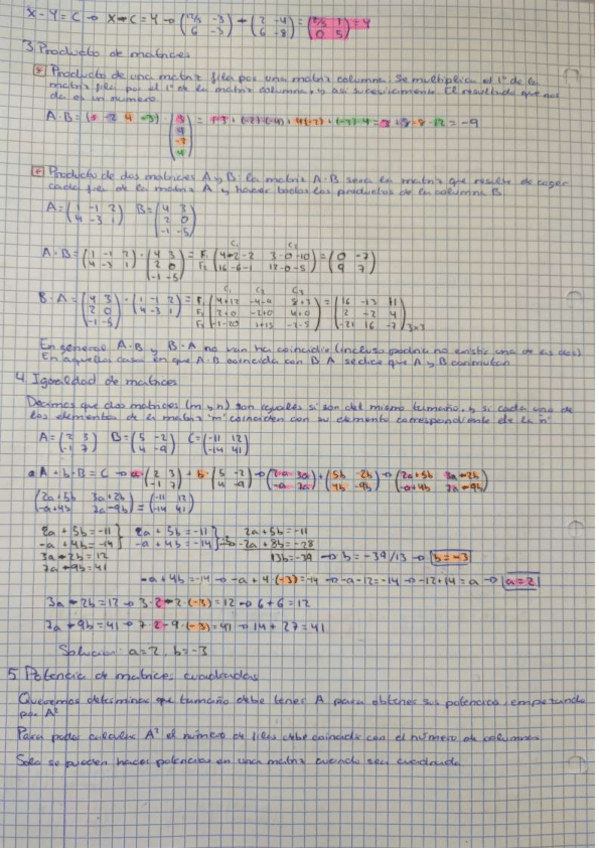 X - Y = C → X - C = Y → (12/3 -3 / 6 -3) - (2 -4 / 6 -8) = ( 1 / 0 5) = Y
3 Producto de matrices
Producto de una matriz fila por una matriz columna: Se multiplica el 1º de la
matriz fila por el 1º de la matriz columna, y así sucesivamente. El resultado que nos
da es un número.
A·B = ( 2 4 -3) · (3 / 4 / -2 / 4) = + (-2)·(-4) + 4(-2) + (-3)·4 = 3 + 8 - 8 - 12 = -9
Producto de dos matrices A y B: la matriz A·B será la matriz que resulte de coger
cada fila de la matriz A y hacer todos los productos de la columna B.
A = (1 -1 2 / 4 -3 1) B = (4 3 / 2 0 / -1 -5)
C1 C2
A·B = (1 -1 2 / 4 -3 1) · (4 3 / 2 0 / -1 -5) = F1 F2 (4-2-2 3-0-10 / 16-6-1 12-0-5) = (0 -7 / 9 7)
C1 C2 C3
B·A = (4 3 / 2 0 / -1 -5) · (1 -1 2 / 4 -3 1) = F1 F2 F3 (4+12 -4-9 8+3 / 2+0 -2+0 4+0 / -1-20 1+15 -2-5) = (16 -13 11 / 2 -2 4 / -21 16 -7) 3×3
En general A·B y B·A no van ha coincidir (incluso podría no existir una de las dos)
En aquellos casos en que A·B coincida con B·A se dice que A y B conmutan.
4 Igualdad de matrices
Decimos que dos matrices (m y n) son iguales si son del mismo tamaño, y si cada uno de
los elementos de la matriz "m" coinciden con su elemento correspondiente de la "n"
A = (2 3 / -1 7) B = (5 -2 / 4 -9) C = (-11 12 / -14 41)
a A + b·B = C → a·(2 3 / -1 7) + b·(5 -2 / 4 -9) → (2a 3a / -a 7a) + (5b -2b / 4b -9b) → (2a+5b 3a-2b / -a+4b 7a-9b)
(2a+5b 3a-2b / -a+4b 7a-9b) = (-11 12 / -14 41)
2a + 5b = -11 2a + 5b = -11 2a + 5b = -11
-a + 4b = -14 -a + 4b = -14 → -2a + 8b = -28
3a - 2b = 12 13b = -39 → b = -39/13 → b = -3
7a - 9b = 41
-a + 4b = -14 → -a + 4·(-3) = -14 → -a - 12 = -14 → -12 + 14 = a → a = 2
3a - 2b = 12 → 3·2 - 2·(-3) = 12 → 6 + 6 = 12
7a - 9b = 41 → 7·2 - 9·(-3) = 41 → 14 + 27 = 41
Solución: a = 2, b = -3
5 Potencia de matrices cuadradas
Queremos determinar que tamaño debe tener A para obtener sus potencias, empezando
por A²
Para poder calcular A² el número de filas debe coincidir con el número de columnas
Solo se pueden hacer potencias en una matriz cuando sea cuadrada.